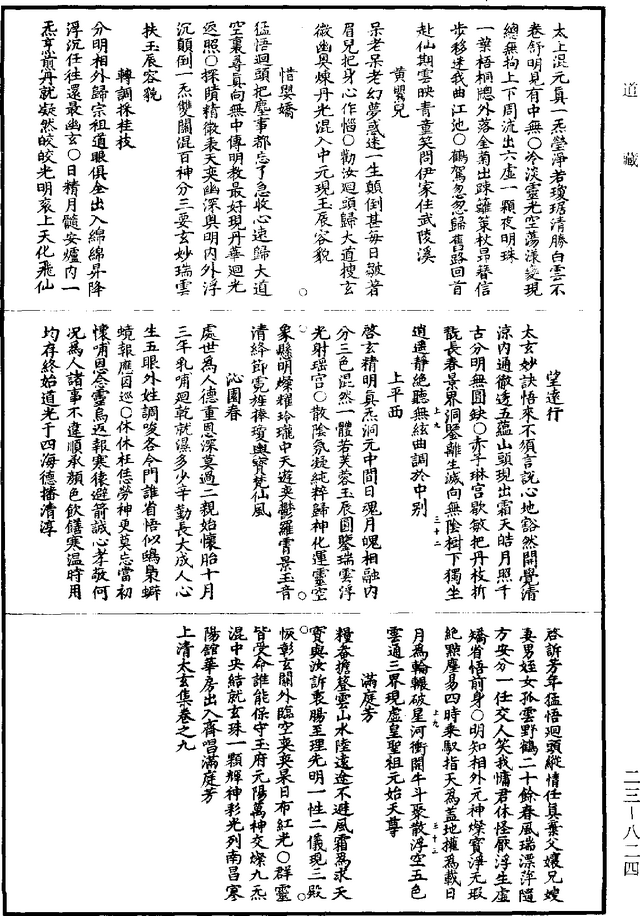 道藏
太上混元真一炁瑩淨若瓊琚清勝白雲不
卷舒明見有中無○冷淡靈光空蕩漾變現
總無拘上下周流出六虛一顆夜明珠
一葉梧桐牕外落金菊出踈蘺策杖昂簪信
步移迷我曲江池○鶴駕忽忽歸舊路回首
赴仙期雲映青童笑問伊家住武陵溪
黄鸎兒
呆老呆老幻夢惑迷一生顛倒甚每日皺著
眉兒把身心作惱○勸汝迴頭歸大道搜玄
微幽奥煉丹光混入中元現玉辰容貌
惜嬰嬌
猛悟迴頭把塵事都忘了急收心速歸大道
空裏尋真向無中傳明教最好現丹華迴光
返照○探賾精微表天奕幽深奥明内外浮
沉顛倒一炁雙闗混百神分三要玄妙瑞雲
扶玉辰容貌
轉調採桂枝
分明相外歸宗祖道眼俱全出入綿綿昇降
浮沉任往還最幽玄○日精月髓安爐内一
炁烹煎丹就凝然皎皎光明衮上天化飛仙
望遠行
太玄妙訣悟來不須言說心地谿然開覺清
涼内通徹透五蘊山頭現出霜天皓月照千
古分明無圓缺○赤千琳宫歇歛把丹枝折
翫長春景界洞鑒離生滅向無陰樹下獨坐
逍遥靜絶聽無絃曲調於中别
上平西
啓玄精明真炁洞元中間日魂月魄相融内
分三色混然一體若芙蓉玉辰圓鑒瑞雲浮
光射瑶宫○散陰氛凝純粹歸神化運靈空
象縣明燦耀玲瓏中天遊奕鬱羅霄景玉音
清絳節霓旌捧瓊輿寳梵仙風
沁園春
處世為人德重恩深莫過二親始懷胎十月
三年乳哺迴乾就濕多少辛勤長大成人心
生五眼外姓調唆各令門誰省悟似鴟梟蟒
蜺報應因巡○休休枉恁勞神更莫忘當初
懷哺恩念靈烏返報寒猿避箭誠心孝敬何
况為人諸事不違順承顔色飲饍寒温時用
均存終始道光于四海德播清淳
啓訴芳年猛悟迴頭縱情任真棄父孃兄嫂
妻男姪女孤雲野鶴二十餘春風瑞漂萍隨
方安分一任交人笑我慵君休怪厭浮生虚
矯省悟前身○明知相外元神燦寳淨元瑕
絶點塵易四時乘馭指天為蓋地擁為載日
月為輪輾破星河衝開牛斗聚散浮空五色
雲通三界現虚皇聖祖元始天尊
滿庭芳
糧奩擔簦雲山水陸遠途不避風霜為求天
寳與汝訴衷腸至理光明一性二儀現三殿
恢彰玄關外臨空奕奕杲日布紅光○群靈
皆受命誰能保守玉府元陽萬神交燦九炁
混中央結就玄珠一顆輝神彩光列南昌寒
陽館華房出入齊唱滿庭芳
上清太玄集卷之九
二三—八二四